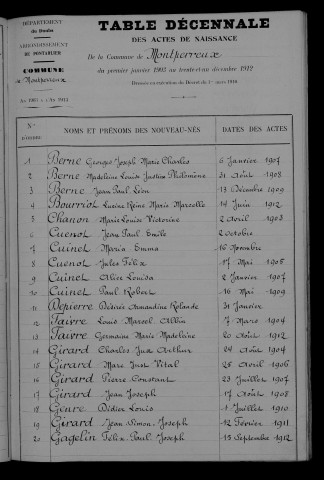 DÉPARTEMENT
du Doubs
ARRONDISSEMENT
DE PONTARLIER
COMMUNE
de Montperreux
An 1903 à l'An 1912
TABLE DÉCENNALE
DES ACTES DE NAISSANCE
De la Commune de Montperreux
du premier janvier 1903 au trente-et-un décembre 1912
Nos D'ORDRE NOMS ET PRÉNOMS DES NOUVEAU-NÉS DATES DES ACTES
1 Berne Georges Joseph Marie Charles 6 Janvier 1907
2 Berne Madeleine Louise Justine Philomène 31 Août 1908
3 Berne Jean Paul Léon 13 Décembre 1909
4 Bourriot Lucine Rène Marie Marcelle 14 Juin 1912
5 Chanon Marie Louise Victorine 2 Avril 1903
6 Cuenot Jean Paul Emile 2 Octobre
7 Cuinet Maria Emma 16 Novembre
8 Cuenot Jules Félix 17 Mai 1905
9 Cuinet Alice Louisa 2 Janvier 1907
10 Cuinet Paul Robert 16 Mai 1909
11 Depierre Désirée Amandine Rolande 31 Janvier
12 Faivre Louis Marcel Albin 7 Mars 1904
13 Faivre Germaine Marie Madeleine 20 Août 1912
14 Girard Charles Just Arthur 24 Août 1904
15 Girard Marc Just Vital 25 Avril 1906
16 Girard Pierre Constant 23 Juillet 1907
17 Girard Jean Joseph 17 Août 1908
18 Genre Didier Louis 1 Juillet 1910
19 Girard Jean Simon Joseph 12 Février 1911
20 Gagelin Félix Paul Joseph 15 Septembre 1912